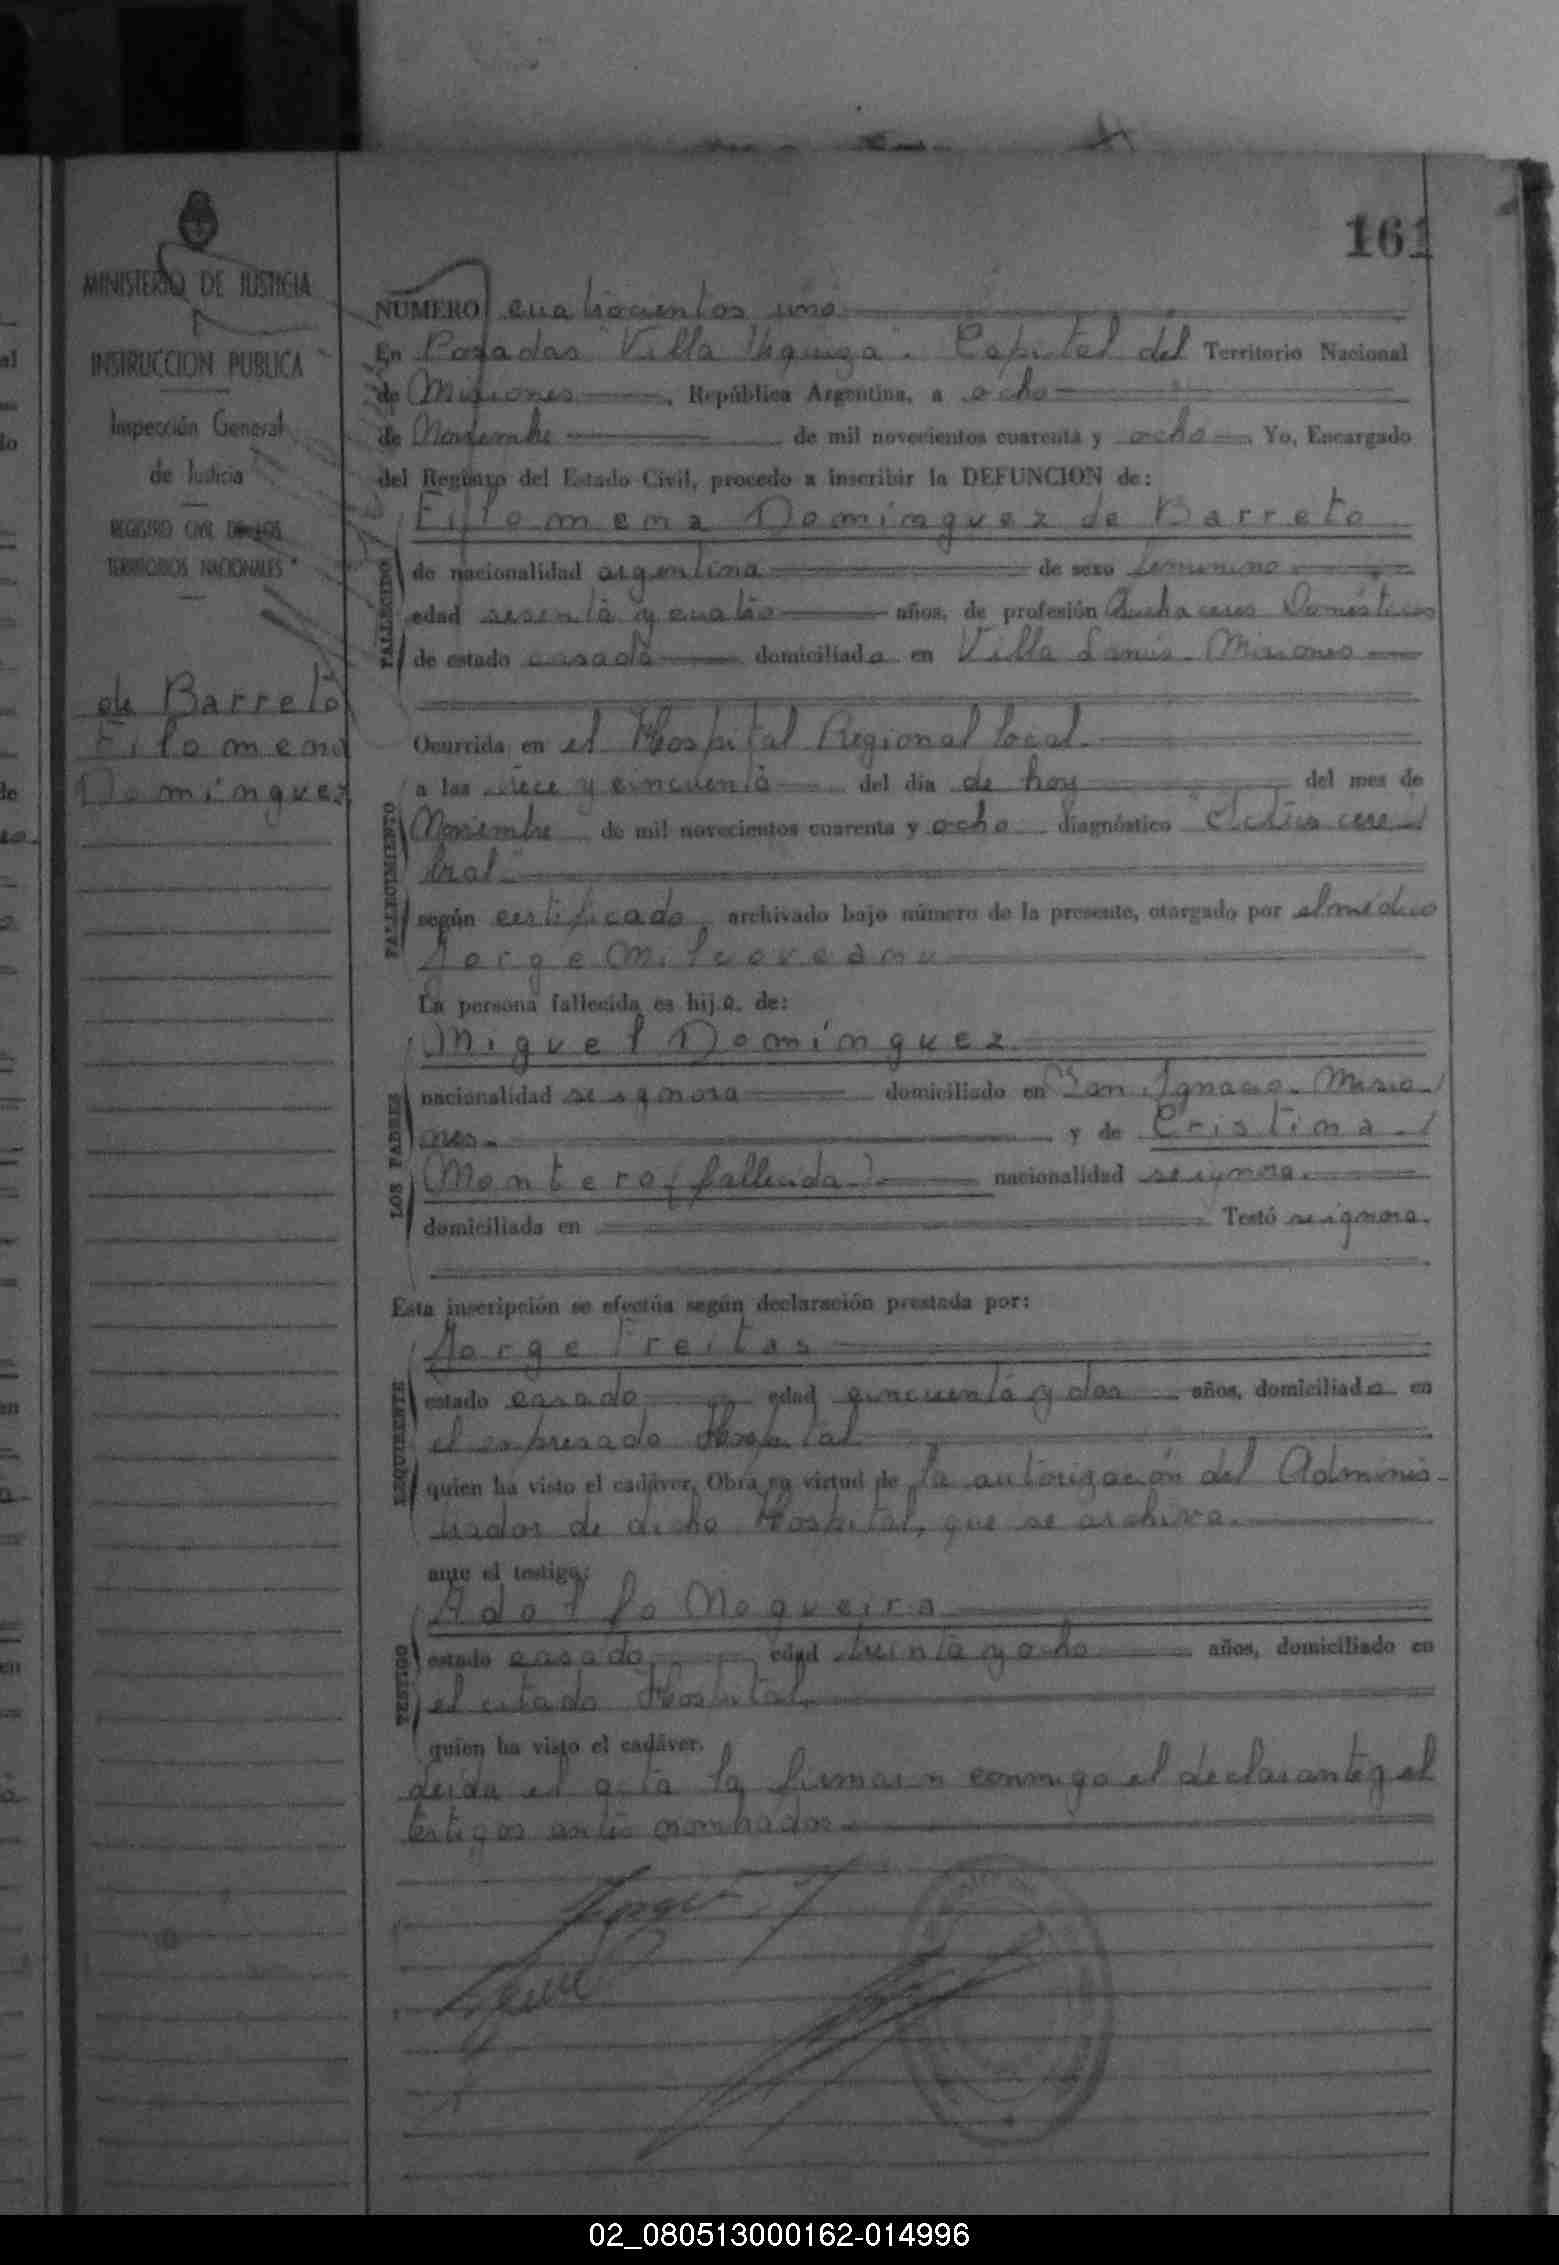 161
MINISTERIO DE JUSTICIA
INSTRUCCION PUBLICA
Inspección General
de Justicia
REGISTRO CIVIL DE LOS
TERRITORIOS NACIONALES
de Barreto
Filomena
Domínguez
NUMERO cuatrocientos uno
En Posadas "Villa Urquiza". Capital del Territorio Nacional
de Misiones, República Argentina, a ocho
de Noviembre de mil novecientos cuarenta y ocho Yo, Encargado
del Registro del Estado Civil, procedo a inscribir la DEFUNCION de:
Filomena Domínguez de Barreto
FALLECIDO
de nacionalidad argentina de sexo femenino
edad sesenta y cuatro años, de profesión Quehaceres Domésticos
de estado casada domiciliada en Villa Lanús. Misiones
Ocurrida en el Hospital Regional local.
FALLECIMIENTO
a las trece y cincuenta del día de hoy del mes de
Noviembre de mil novecientos cuarenta y ocho diagnóstico "Ictus cere
bral"
según certificado, archivado bajo número de la presente, otorgado por el médico
Jorge Milcoveanu
La persona fallecida es hija de:
Miguel Domínguez
LOS PADRES
nacionalidad se ignora domiciliado en San Ignacio. Misio
nes. y de Cristina
Montero (fallecida). nacionalidad se ignora.
domiciliada en Testó se ignora.
Esta inscripción se efectúa según declaración prestada por:
Jorge Freitas
REQUIRENTE
estado casado edad cincuenta y dos años, domiciliado en
el expresado Hospital
quien ha visto el cadáver. Obra en virtud de la autorización del Adminis-
trador de dicho Hospital, que se archiva.
ante el testigo:
Adolfo Nogueira
TESTIGO
estado casado edad treinta y ocho años, domiciliado en
el citado Hospital.
quien ha visto el cadáver.
Leida el acta la firmaron conmigo el declarante y el
testigos antes nombrados
02_080513000162-014996